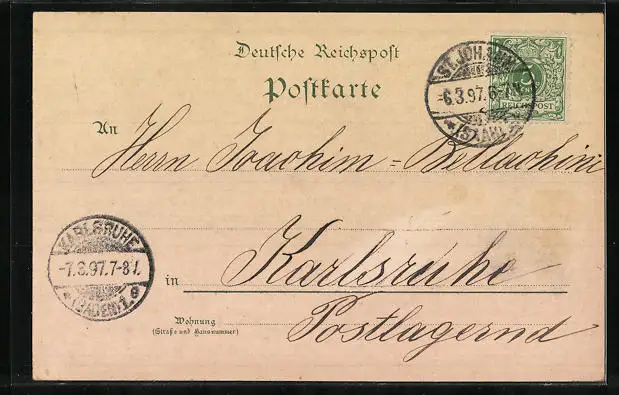 Deutsche Reichspost
Postkarte
An
Herrn Joachim = Bellachini
in Karlsruhe
Wohnung
(Straße und Hausnummer)
Postlagernd
ST. JOH. SAAR
-6.3.97.6-7.N.
(SAAR)
5
REICHSPOST
KARLSRUHE
-7.3.97.7-8V.
(BADEN) 1